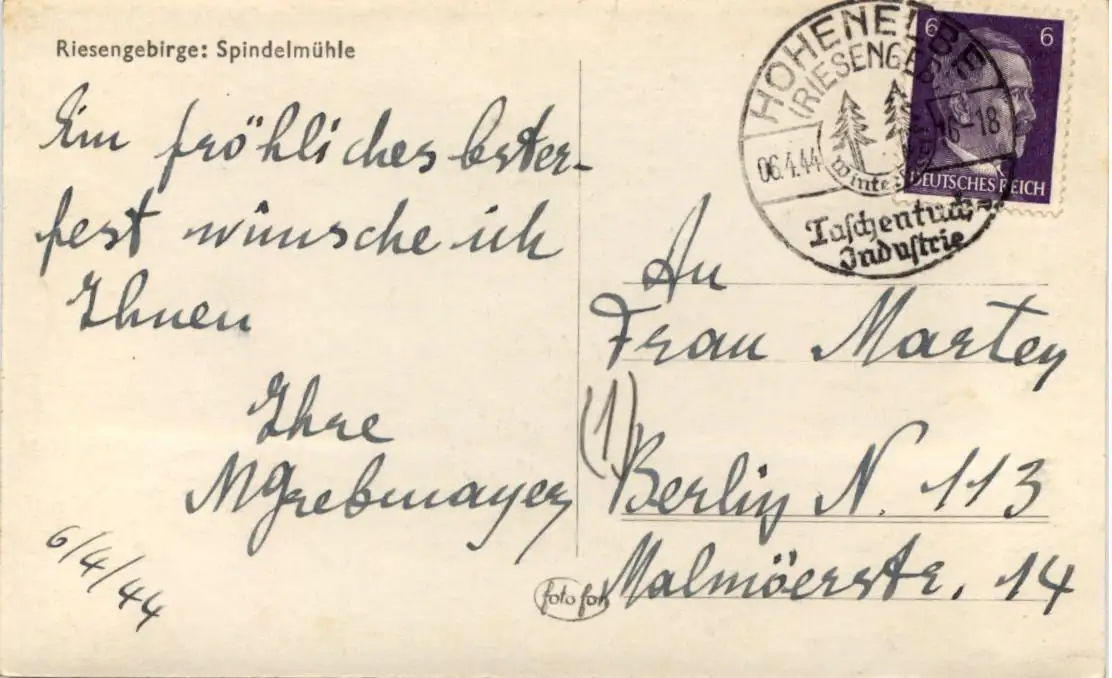 Riesengebirge: Spindelmühle
Ein fröhliches Oster-
fest wünsche ich
Ihnen
Ihre
MGrebmayer
6/4/44
HOHENELBE
(RIESENGEB.
06.4.44
16-18
Winter
Taschentuch-
Industrie
6
6
DEUTSCHES REICH
An
Frau Martey
(1)
Berlin N. 113
Malmöerstr. 14
foto fon